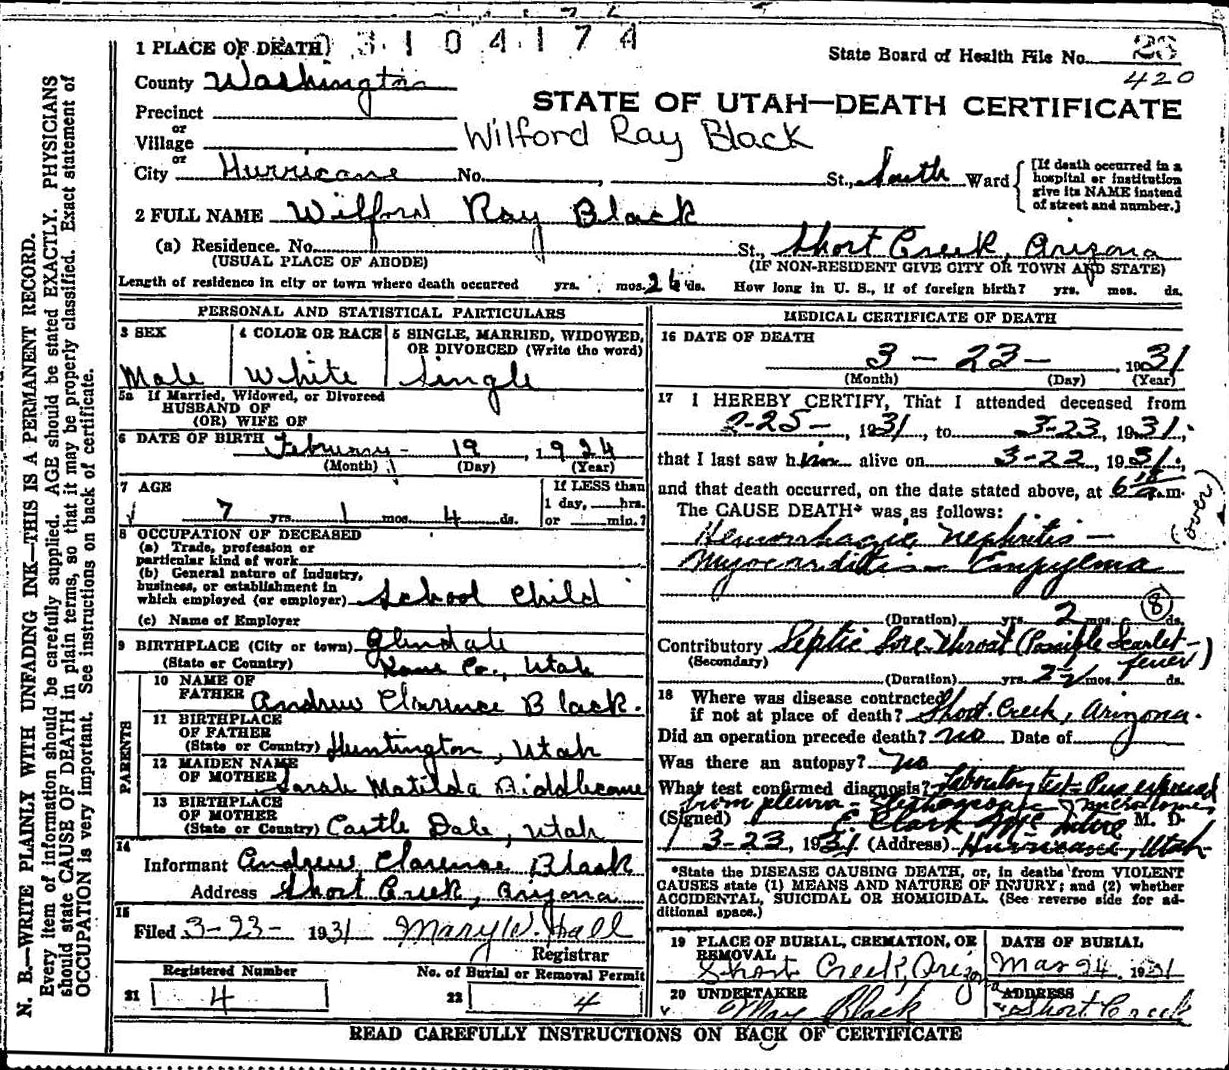 1 PLACE OF DEATH
3 1 0 4 1 7 4
State Board of Health File No. 23
420
County Washington
STATE OF UTAH—DEATH CERTIFICATE
Precinct
or
Village
Wilford Ray Black
or
City Hurricane No. , St., South Ward
[If death occurred in a
hospital or institution
give its NAME instead
of street and number.]
2 FULL NAME Wilford Ray Black
(a) Residence. No. St., Short Creek, Arizona
(USUAL PLACE OF ABODE) (IF NON-RESIDENT GIVE CITY OR TOWN AND STATE)
Length of residence in city or town where death occurred yrs. mos. 26 ds. How long in U. S., if of foreign birth? yrs. mos. ds.
PERSONAL AND STATISTICAL PARTICULARS
3 SEX
Male
4 COLOR OR RACE
White
5 SINGLE, MARRIED, WIDOWED,
OR DIVORCED (Write the word)
Single
5a If Married, Widowed, or Divorced
HUSBAND OF
(OR) WIFE OF
6 DATE OF BIRTH February - 19 , 1924
(Month) (Day) (Year)
7 AGE
7 yrs. 1 mos. 4 ds.
If LESS than
1 day, hrs.
or min.?
8 OCCUPATION OF DECEASED
(a) Trade, profession or
particular kind of work
(b) General nature of industry,
business, or establishment in
which employed (or employer) School Child
(c) Name of Employer
9 BIRTHPLACE (City or town) Glendale
(State or Country) Kane Co., Utah
PARENTS
10 NAME OF
FATHER Andrew Clarence Black.
11 BIRTHPLACE
OF FATHER
(State or Country) Huntington, Utah
12 MAIDEN NAME
OF MOTHER Sarah Matilda
13 BIRTHPLACE
OF MOTHER
(State or Country) Castle Dale, Utah
14
Informant Andrew Clarence Black
Address Short Creek, Arizona
15
Filed 3-23- 1931 Mary W. Hall
Registrar
Registered Number
21 4
No. of Burial or Removal Permit
22 4
MEDICAL CERTIFICATE OF DEATH
16 DATE OF DEATH
3 - 23 - , 1931
(Month) (Day) (Year)
17 I HEREBY CERTIFY, That I attended deceased from
2-25-, 1931, to 3-23, 1931,
that I last saw him alive on 3-22, 1931,
and that death occurred, on the date stated above, at 6 a.m.
(over)
The CAUSE DEATH* was as follows:
Hemorrhagic Nephritis -
Myocarditis - Empyema
(Duration) yrs. 2 mos. ds.
8
Contributory Septic Sore Throat (Possible Scarlet
(Secondary) fever)
(Duration) yrs. 2 1/2 mos. ds.
18 Where was disease contracted
if not at place of death? Short Creek, Arizona.
Did an operation precede death? no Date of
Was there an autopsy? no
What test confirmed diagnosis? Laboratory test - Pus
from pleura -
(Signed) E Clark McIntire M. D.
3-23, 1931 (Address) Hurricane, Utah
*State the DISEASE CAUSING DEATH, or, in deaths from VIOLENT
CAUSES state (1) MEANS AND NATURE OF INJURY; and (2) whether
ACCIDENTAL, SUICIDAL OR HOMICIDAL. (See reverse side for ad-
ditional space.)
19 PLACE OF BURIAL, CREMATION, OR
REMOVAL
Short Creek, Arizona
DATE OF BURIAL
Mar 24 1931
20 UNDERTAKER
May Black
ADDRESS
Short Creek
READ CAREFULLY INSTRUCTIONS ON BACK OF CERTIFICATE
N. B.—WRITE PLAINLY WITH UNFADING INK—THIS IS A PERMANENT RECORD.
Every item of information should be carefully supplied. AGE should be stated EXACTLY. PHYSICIANS
should state CAUSE OF DEATH in plain terms, so that it may be properly classified. Exact statement of
OCCUPATION is very important. See instructions on back of certificate.